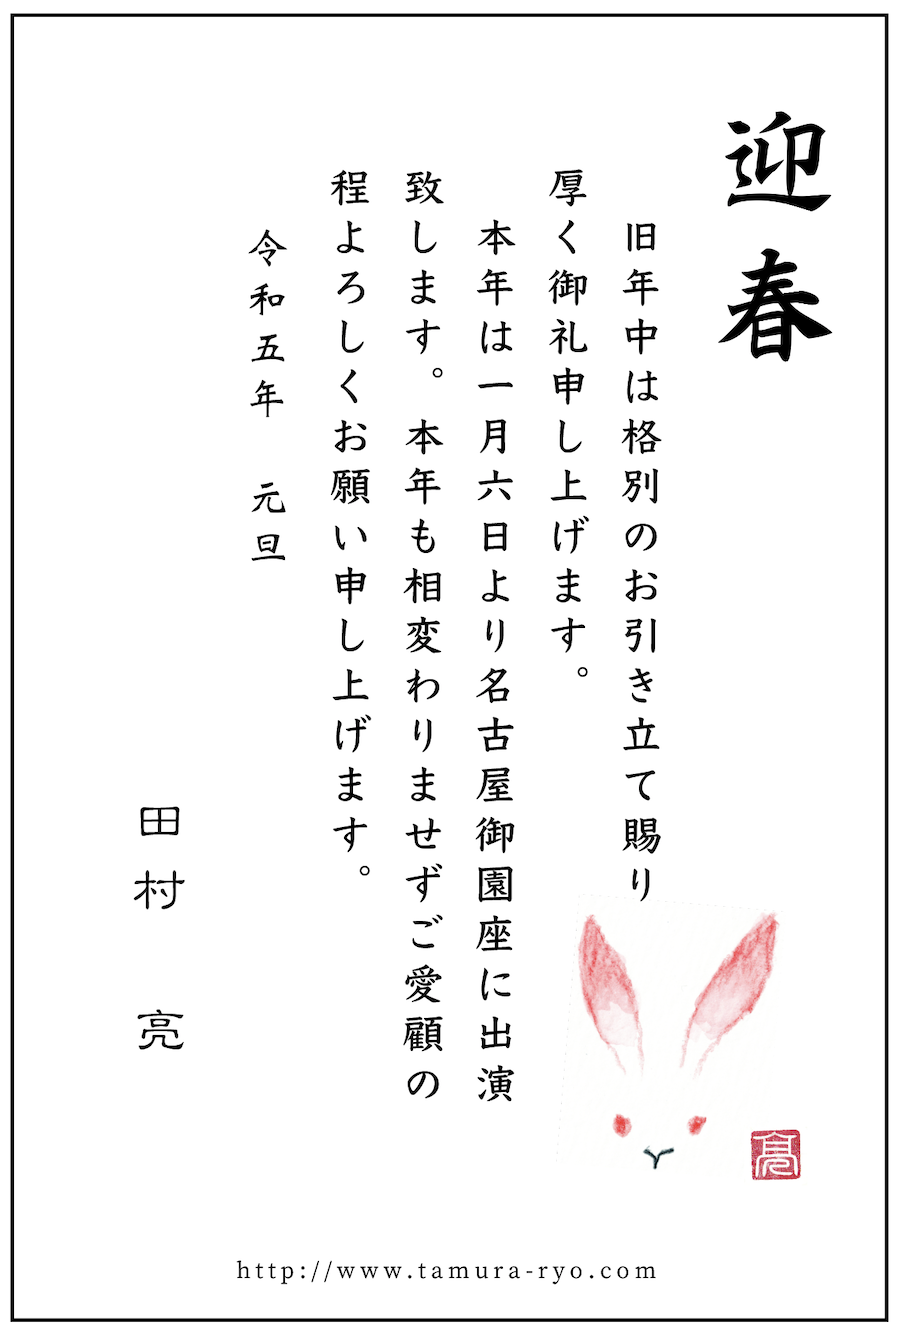 迎春
旧年中は格別のお引き立て賜り
厚く御礼申し上げます。
本年は一月六日より名古屋御園座に出演
致します。本年も相変わりませずご愛顧の
程よろしくお願い申し上げます。
令和五年　元旦
田村　亮
亮
http://www.tamura-ryo.com